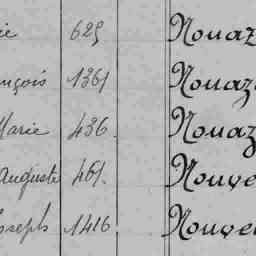 ie 625 Nouaz
nçois 1361 Nouaz
Marie 436. Nouaz
Auguste 461. Nouve
Joseph 1416. Nouve